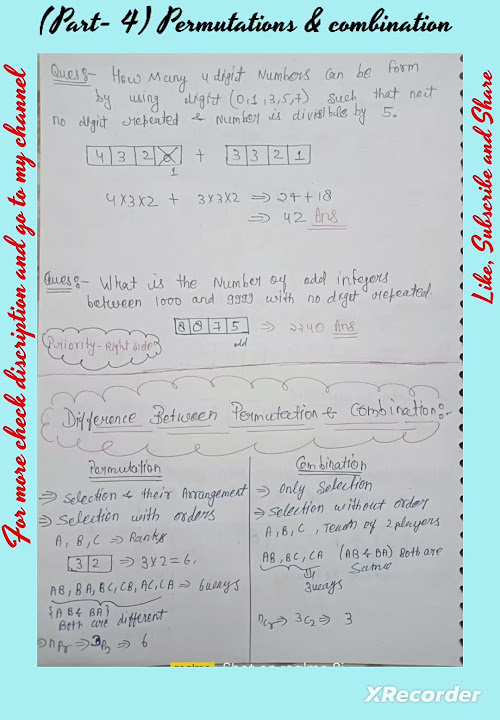 (Part- 4) Permutations & combination
For more check discription and go to my channel
Like, Subscribe and Share
Ques:- How Many 4 digit Numbers Can be form
by using digit (0,1,3,5,7) Such that
no digit repeated & Number is divisible by 5.
4 3 2 + 3 3 2 1
1
4x3x2 + 3x3x2 ⇒ 24+18
⇒ 42 Ans
Ques:- What is the Number of odd integers
between 1000 and 9999 with no digit repeated.
Priority-Right side
8 8 7 5 ⇒ 2240 Ans
odd
Difference Between Permutation & Combination:-
Permutation
⇒ Selection & their Arrangement
⇒ Selection with orders
A, B, C ⇒ Ranks
3 2 ⇒ 3x2=6.
AB, BA, BC, CB, AC, CA ⇒ 6 ways
{AB & BA}
Both are different
⇒ nPr ⇒ 3P2 ⇒ 6
Combination
⇒ Only Selection
⇒ Selection without orders
A, B, C, Team of 2 players
AB, BC, CA (AB & BA) Both are
Same
3 ways
nCr ⇒ 3C2 ⇒ 3
Shot on realme
XRecorder